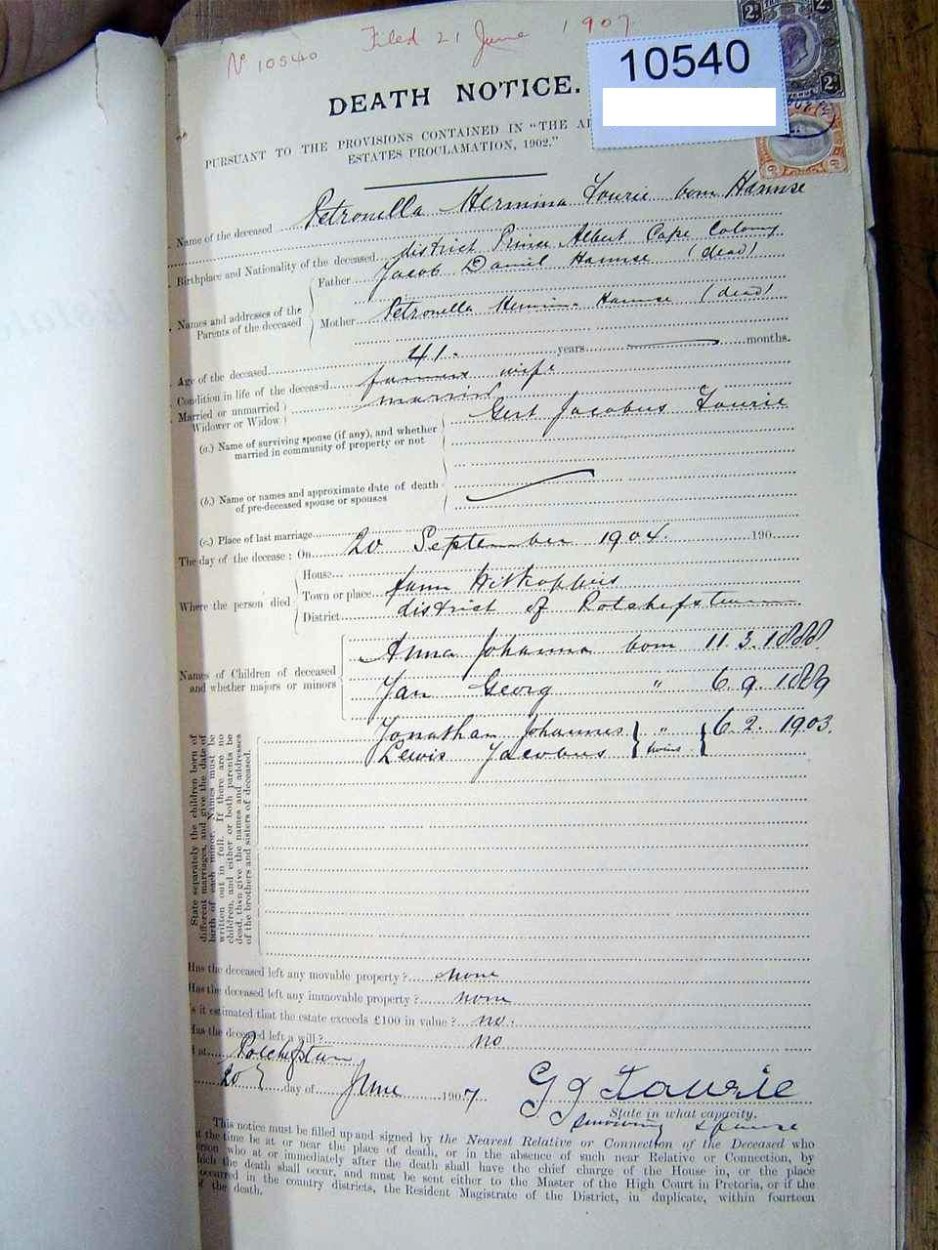 No 10540 Filed 21 June 1907
10540
DEATH NOTICE.
PURSUANT TO THE PROVISIONS CONTAINED IN "THE
ESTATES PROCLAMATION, 1902."
Name of the deceased Petronella Hermina Tourie born Hamse
Birthplace and Nationality of the deceased district Prince Albert Cape Colony
Names and addresses of the Parents of the deceased
Father Jacob Daniel Hamse (dead)
Mother Petronella Hermina Hamse (dead)
Age of the deceased 41. years months.
Condition in life of the deceased farmers wife
Married or unmarried married
Widower or Widow
(a.) Name of surviving spouse (if any), and whether Gert Jacobus Tourie
married in community of property or not
(b.) Name or names and approximate date of death
of pre-deceased spouse or spouses
(c.) Place of last marriage
The day of the decease: On 20 September 1904. 190
Where the person died
House
Town or place farm
District district of
Names of Children of deceased
and whether majors or minors
Anna Johanna born 11.3.1888.
Jan Georg " 6.9.1889
Jonathan Johannes } " { 6.2.1903.
Lewis Jacobus } twins {
State separately the children born of
different marriages, and give the date of
birth of each minor. Names must be
written out in full. If there are no
children, and either or both parents be
dead, then give the names and addresses
of the brothers and sisters of deceased.
Has the deceased left any movable property? none
Has the deceased left any immovable property? none
is it estimated that the estate exceeds £100 in value? no.
Has the deceased left a will? no
at
20 day of June 1907
G J Tourie
State in what capacity.
surviving spouse
This notice must be filled up and signed by the Nearest Relative or Connection of the Deceased who
at the time be at or near the place of death, or in the absence of such near Relative or Connection, by
person who at or immediately after the death shall have the chief charge of the House in, or the place
which the death shall occur, and must be sent either to the Master of the High Court in Pretoria, or if the
occurred in the country districts, the Resident Magistrate of the District, in duplicate, within fourteen
of the death.